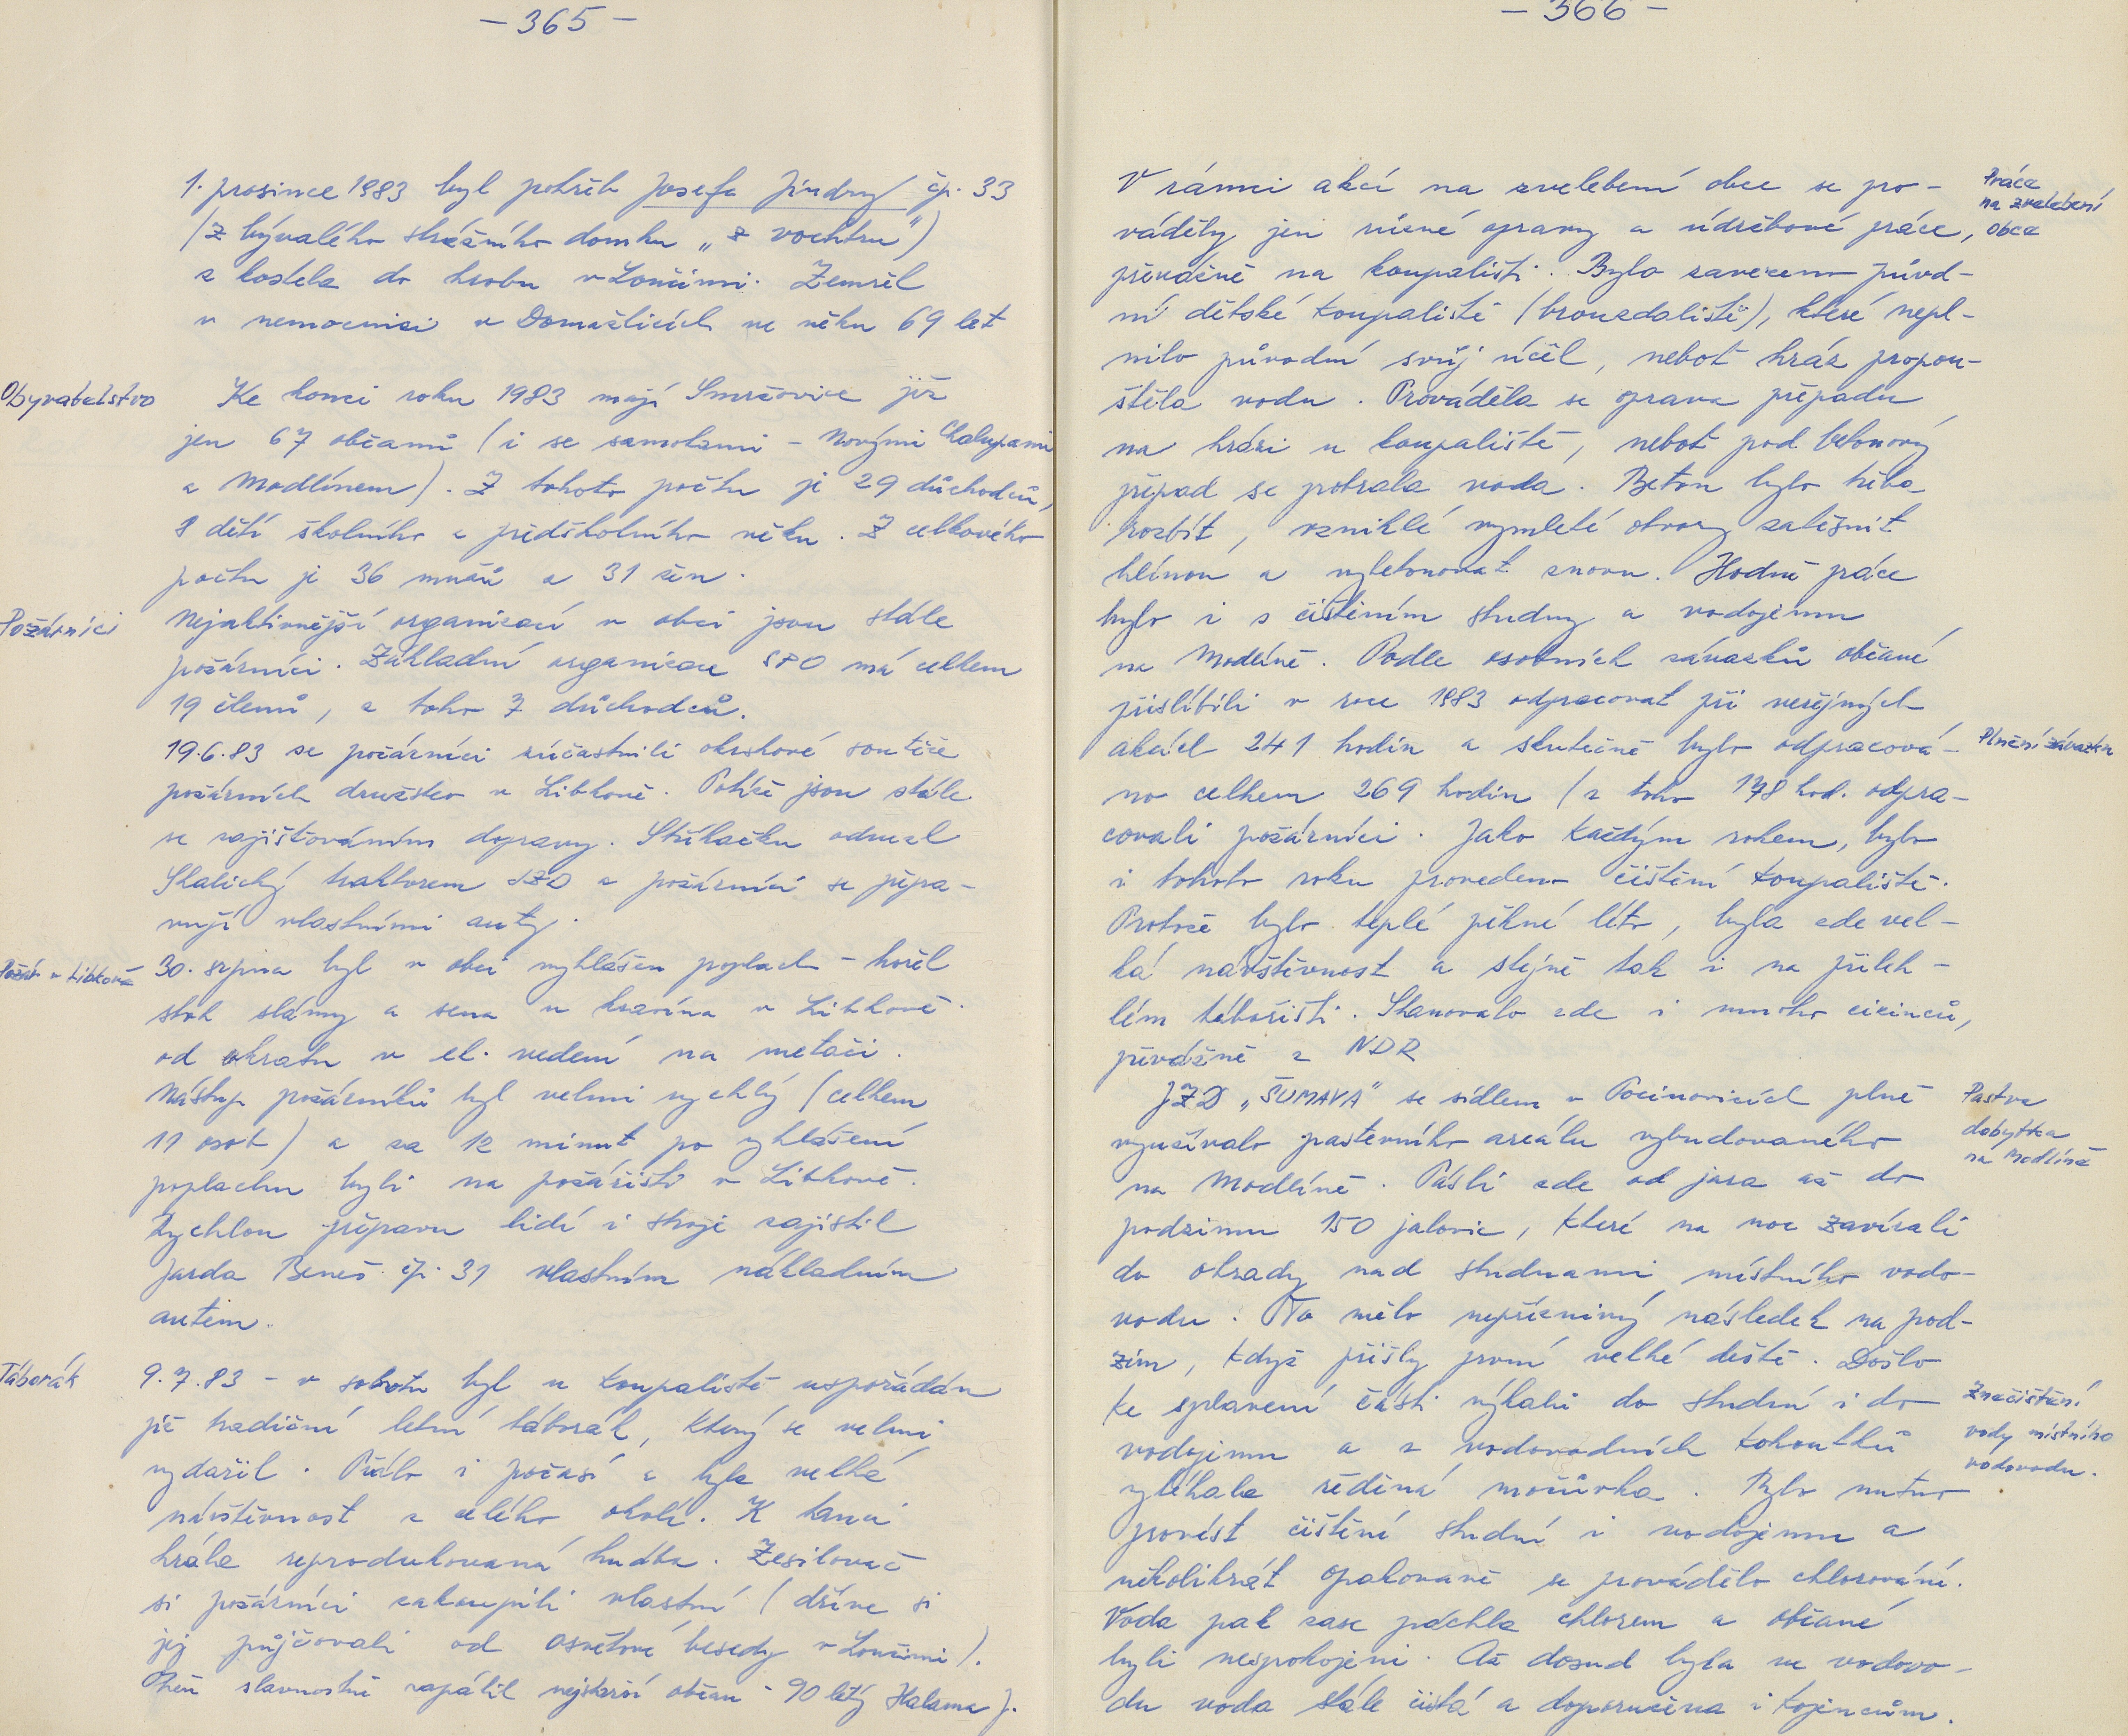 - 365 -
1. prosince 1983 byl pohřeb Josefa Jindry čp. 33
(z bývalého strážního domku „z vochtru")
z kostela do hrobu v Loučimi. Zemřel
v nemocnici v Domažlicích ve věku 69 let
Obyvatelstvo
Ke konci roku 1983 mají Smržovice již
jen 67 občanů (i se samotami - Novými Chalupami
a Modlínem). Z tohoto počtu je 29 důchodců,
8 dětí školního a předškolního věku. Z celkového
počtu je 36 mužů a 31 žen.
Požárníci
Nejaktivnější organizací v obci jsou stále
požárníci. Základní organizace SPO má celkem
19 členů, z toho 7 důchodců.
19.6.83 se požárníci zúčastnili okrskové soutěže
požárních družstev v Libkově. Potíže jsou stále
se zajišťováním dopravy. Stříkačku odvezl
Skalický traktorem JZD a požárníci se přepra-
vují vlastními auty.
Požár v Libkově
30. srpna byl v obci vyhlášen poplach - hořel
stoh slámy a sena u kravína v Libkově
od zkratu v el. vedení na metači.
Nástup požárníků byl velmi rychlý (celkem
11 osob) a za 12 minut po vyhlášení
poplachu byli na požářišti v Libkově.
Rychlou přepravu lidí i stroje zajistil
Jarda Beneš čp. 31 vlastním nákladním
autem.
Táborák
9.7.83 - v sobotu byl u koupaliště uspořádán
již tradiční letní táborák, který se velmi
vydařil. Přálo i počasí a byla velká
návštěvnost z celého okolí. K tanci
hrála reprodukovaná hudba. Zesilovač
si požárníci zakoupili vlastní (dříve si
jej půjčovali od Osvětové besedy v Loučimi).
Oheň slavnostně zapálil nejstarší občan - 90 letý Halama J.
- 366 -
Práce
na zvelebení
obce
V rámci akcí na zvelebení obce se pro-
váděly jen různé opravy a údržbové práce,
převážně na koupališti. Bylo zavezeno původ-
ní dětské koupaliště (brouzdaliště), které nepl-
nilo původní svůj účel, neboť hráz propou-
štěla vodu. Prováděla se oprava přepadu
na hrázi u koupaliště, neboť pod betonový
přepad se protrala voda. Beton bylo třeba
rozbít, vzniklé vymleté otvory zatěsnit
hlínou a vybetonovat znovu. Hodně práce
bylo i s čištěním studny a vodojemu
na Modlíně. Podle osobních závazků občané
přislíbili v roce 1983 odpracovat při veřejných
Plnění závazku
akcích 241 hodin a skutečně bylo odpracová-
no celkem 269 hodin (z toho 178 hod. odpra-
covali požárníci. Jako každým rokem, bylo
i tohoto roku provedeno čištění koupaliště.
Protože bylo teplé pěkné léto, byla zde vel-
ká návštěvnost a stejně tak i na přileh-
lém tábořišti. Stanovalo zde i mnoho cizinců,
převážně z NDR
Pastva
dobytka
na Modlíně
JZD „ŠUMAVA" se sídlem v Pocinovicích plně
využívalo pastevního areálu vybudovaného
na Modlíně. Pásli zde od jara až do
podzimu 150 jalovic, které na noc zavírali
do ohrady nad studnami místního vodo-
vodu. To mělo nepříznivý následek na pod-
zim, když přišly první velké deště. Došlo
Znečištění
vody místního
vodovodu.
ke splavení části výkalů do studní i do
vodojemu a z vodovodních kohoutků
vytékala ředěná močůvka. Bylo nutno
provést čištění studní i vodojemu a
několikrát opakovaně se provádělo chlorování.
Voda pak zase páchla chlorem a občané
byli nespokojeni. Až dosud byla ve vodovo-
du voda stále čistá a doporučena i kojencům.